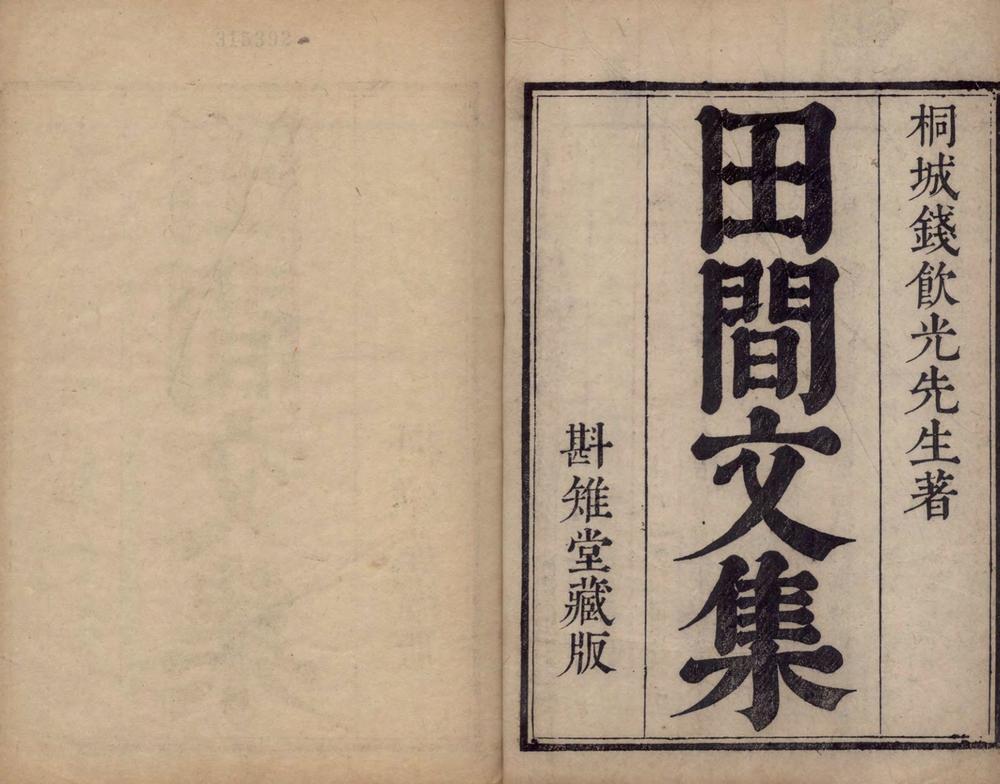 桐城錢飲光先生著
田間文集
斟雉堂藏版
315392